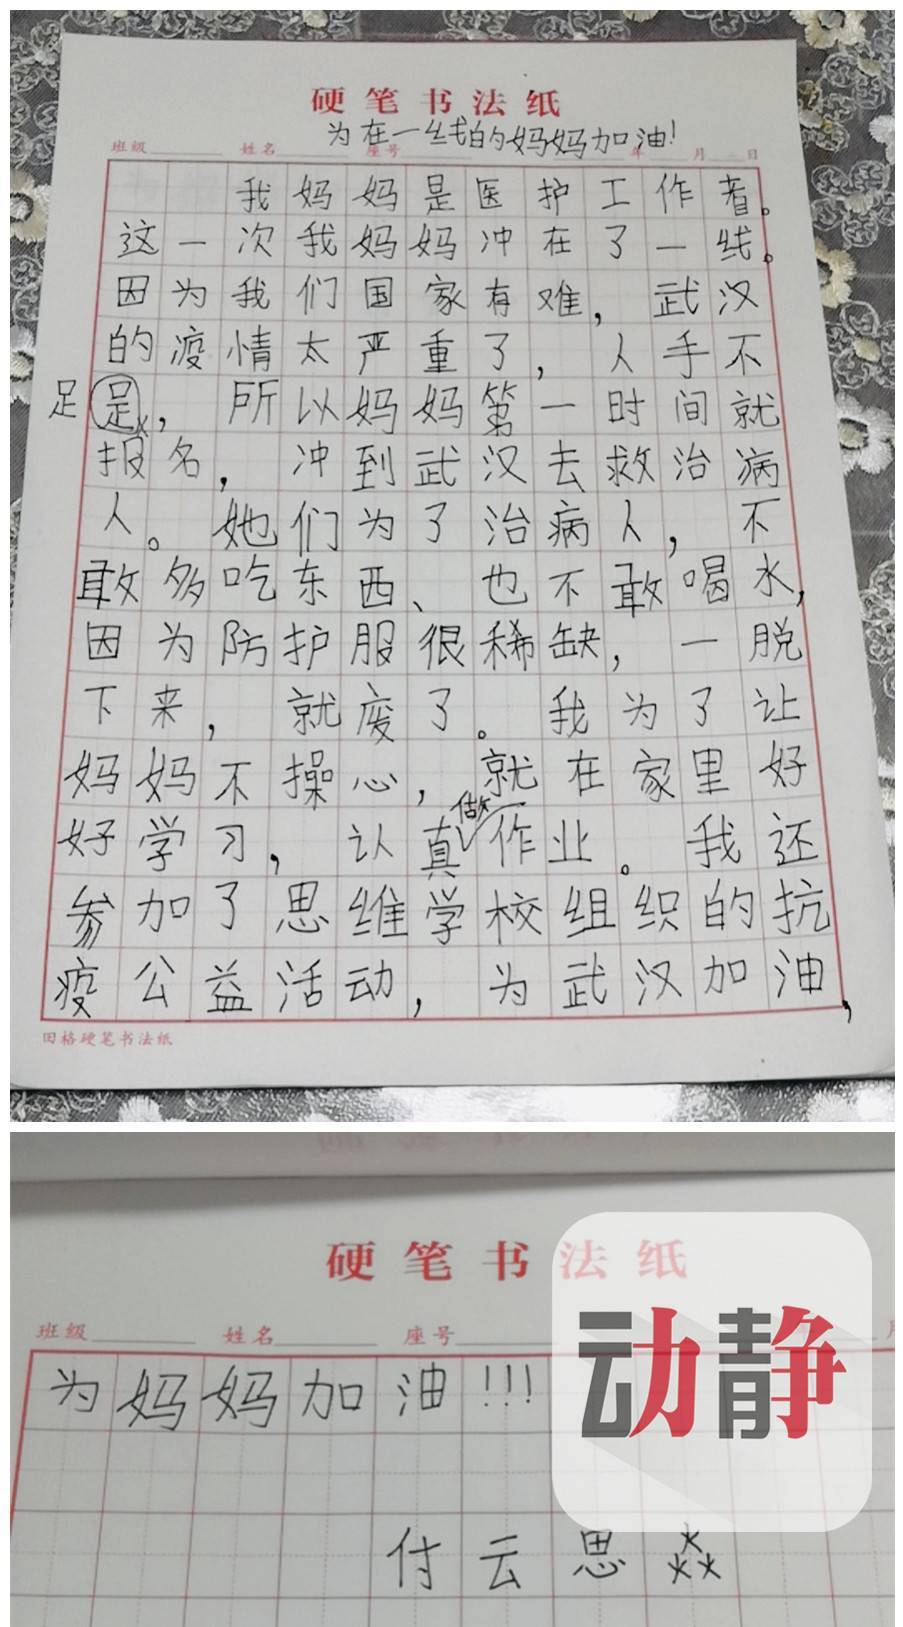 硬笔书法纸
为在一线的妈妈加油!
班级 姓名 座号 年 月 日
我妈妈是医护工作者。
这一次我妈妈冲在了一线。
因为我们国家有难，武汉
的疫情太严重了，人手不
足足，所以妈妈第一时间就
报名，冲到武汉去救治病
人。她们为了治病人，不
敢多吃东西、也不敢喝水，
因为防护服很稀缺，一脱
下来，就废了。我为了让
妈妈不操心，就在家里好
好学习，认真做作业。我还
参加了思维学校组织的抗
疫公益活动，为武汉加油，
田格硬笔书法纸
硬笔书法纸
班级 姓名 座号 月
为妈妈加油!!!
动静
付云思焱